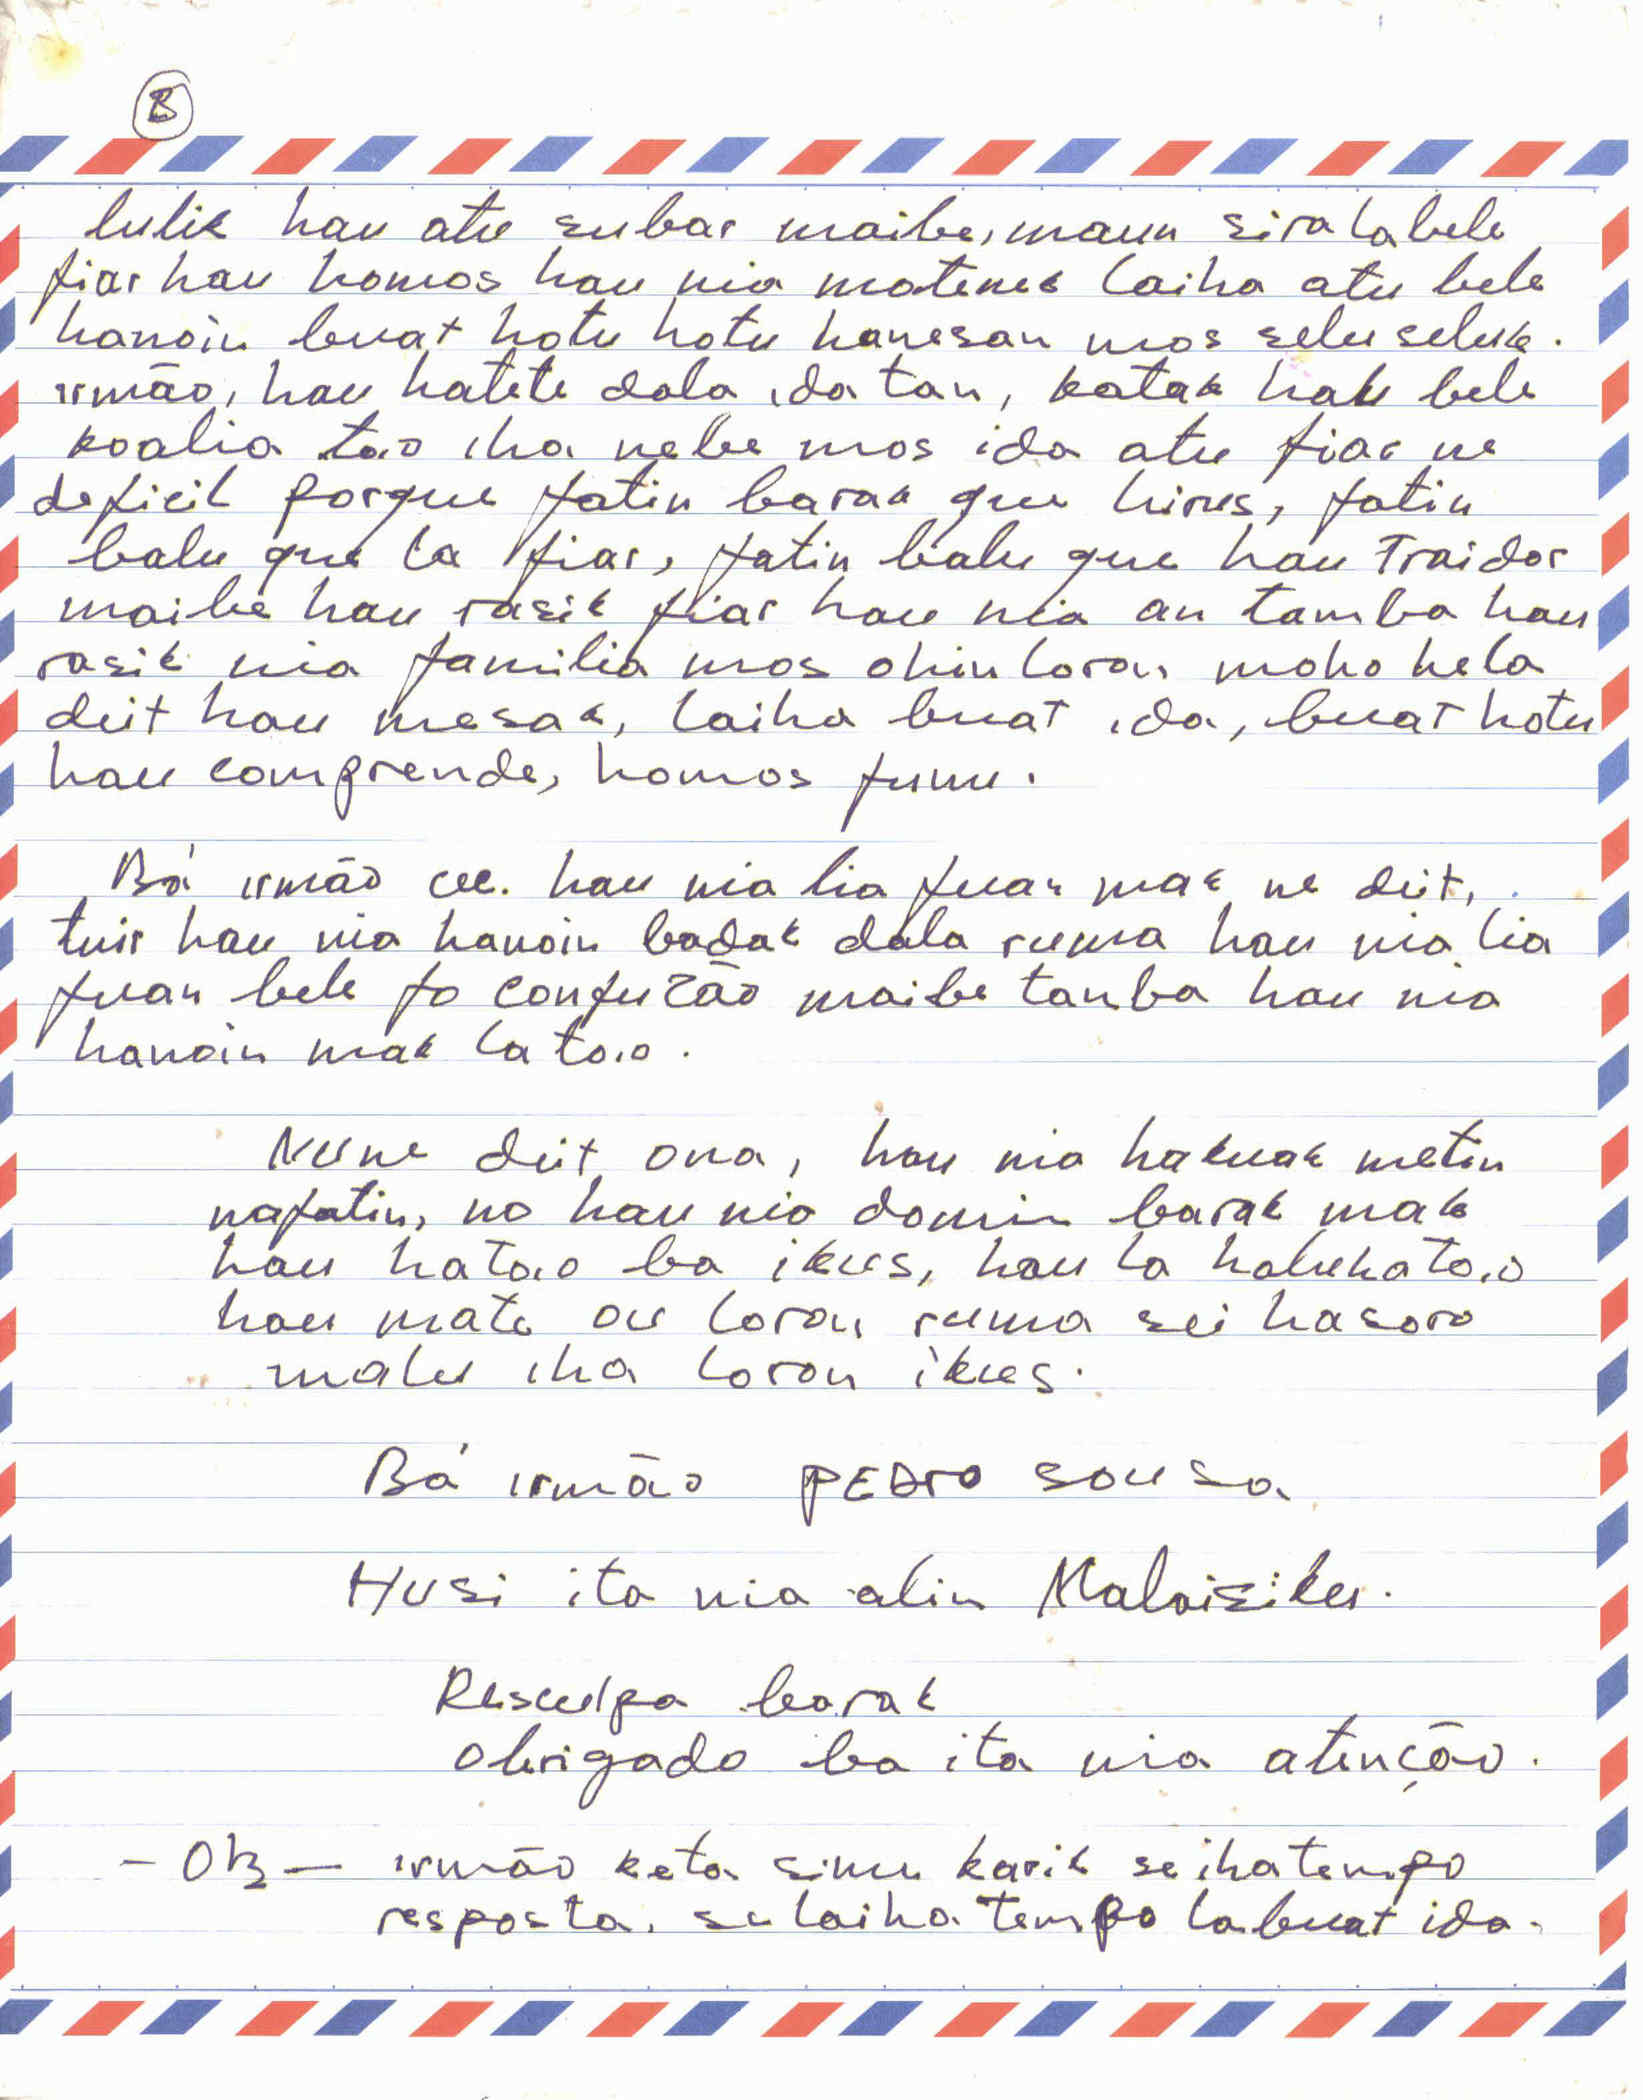 B
lulik hau atu subar maibe, maun sira labele
fiar hau homos hau nia matenek laiha atu bele
hanoin buat hotu hotu hanesan mos selu seluk.
irmão, hau hatete dala ida tan, katak hau bele
koalia to.o iha nebe mos ida atu fiar ne
deficil porque fatin barak que hirus, fatin
balu que la fiar, fatin balu que hau Traidor
maibe hau rasik fiar hau nia an tamba hau
rasik nia familia mos ohin loron moho hela
deit hau mesak, laiha buat ida, buat hotu
hau comprende, homos funu.
Bá irmão hau nia lia fuan mak ne deit,
tuir hau nia hanoin badak dala ruma hau nia lia
fuan bele fo confuzão maibe tanba hau nia
hanoin mak la to.o.
Nune deit ona, hau nia hakuak metin
nafatin, no hau nia domin barak mak
hau hato.o ba ikus, hau la haluhato.o
hau mate ou loron ruma sei hasoro
malu iha loron ikus.
Bá irmão PEDro sousa
Husi ita nia alin Malaisiku.
Desculpa barak
obrigado ba ita nia atenção.
- OB - irmão keta simu karik se iha tempo
resposta. se laiha Tempo labuat ida.